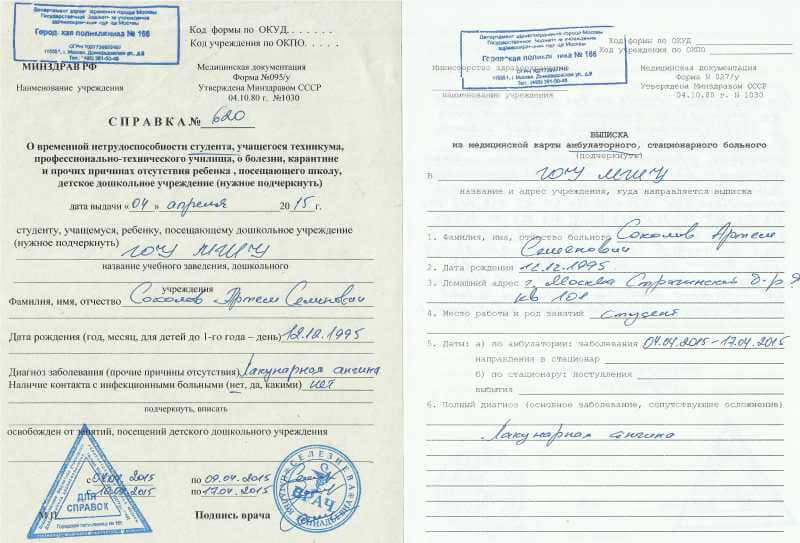 Департамент здравоохранения города Москвы
Государственное бюджетное учреждение
здравоохранения города Москвы
Городская поликлиника № 166
Код формы по ОКУД. . . . . .
Код учреждения по ОКПО. . . . .
МИНЗДРАВ РФ
Наименование учреждения
Медицинская документация
Форма №095/у
Утверждена Минздравом СССР
04.10.80 г. №1030
СПРАВКА№ 620
О временной нетрудоспособности студента, учащегося техникума,
профессионально-технического училища, о болезни, карантине
и прочих причинах отсутствия ребенка , посещающего школу,
детское дошкольное учреждение (нужное подчеркнуть)
дата выдачи «04 » апреля 2015г.
студенту, учащемуся, ребенку, посещающему дошкольное учреждение
(нужное подчеркнуть) ГОУ МГИУ
название учебного заведения, дошкольного
учреждения
Фамилия, имя, отчество Соколов Артем Семенович
Дата рождения (год, месяц, для детей до 1-го года – день) 12.12.1995
Диагноз заболевания (прочие причины отсутствия) Лакунарная ангина
Наличие контакта с инфекционными больными (нет, да, какими) нет
подчеркнуть, вписать
освобожден от занятий, посещений детского дошкольного учреждения
с 04.04.2015 по 09.04.2015
с 10.04.2015 по 17.04.2015
М.П. Подпись врача
ДЛЯ
СПРАВОК
Городская поликлиника № 166
СЕЛЕЗНЕВА
ВРАЧ
Департамент здравоохранения города Москвы
Государственное бюджетное учреждение
здравоохранения города Москвы
Городская поликлиника № 166
Код формы по ОКУД
Код учреждения по ОКПО
Министерство здравоохранения
наименование учреждения
Медицинская документация
Форма N 027/у
Утверждена Минздравом СССР
04.10.80 г. N 1030
ВЫПИСКА
из медицинской карты амбулаторного, стационарного больного
(подчеркнуть)
В ГОУ МГИУ
название и адрес учреждения, куда направляется выписка
1. Фамилия, имя, отчество больного Соколов Артем
Семенович
2. Дата рождения 12.12.1995
3. Домашний адрес г. Москва Строгинский б-р
кв 101
4. Место работы и род занятий студент
5. Даты: а) по амбулатории: заболевания 04.04.2015-17.04.2015
направления в стационар
б) по стационару: поступления
выбытия
6. Полный диагноз (основное заболевание, сопутствующие осложнения)
Лакунарная ангина